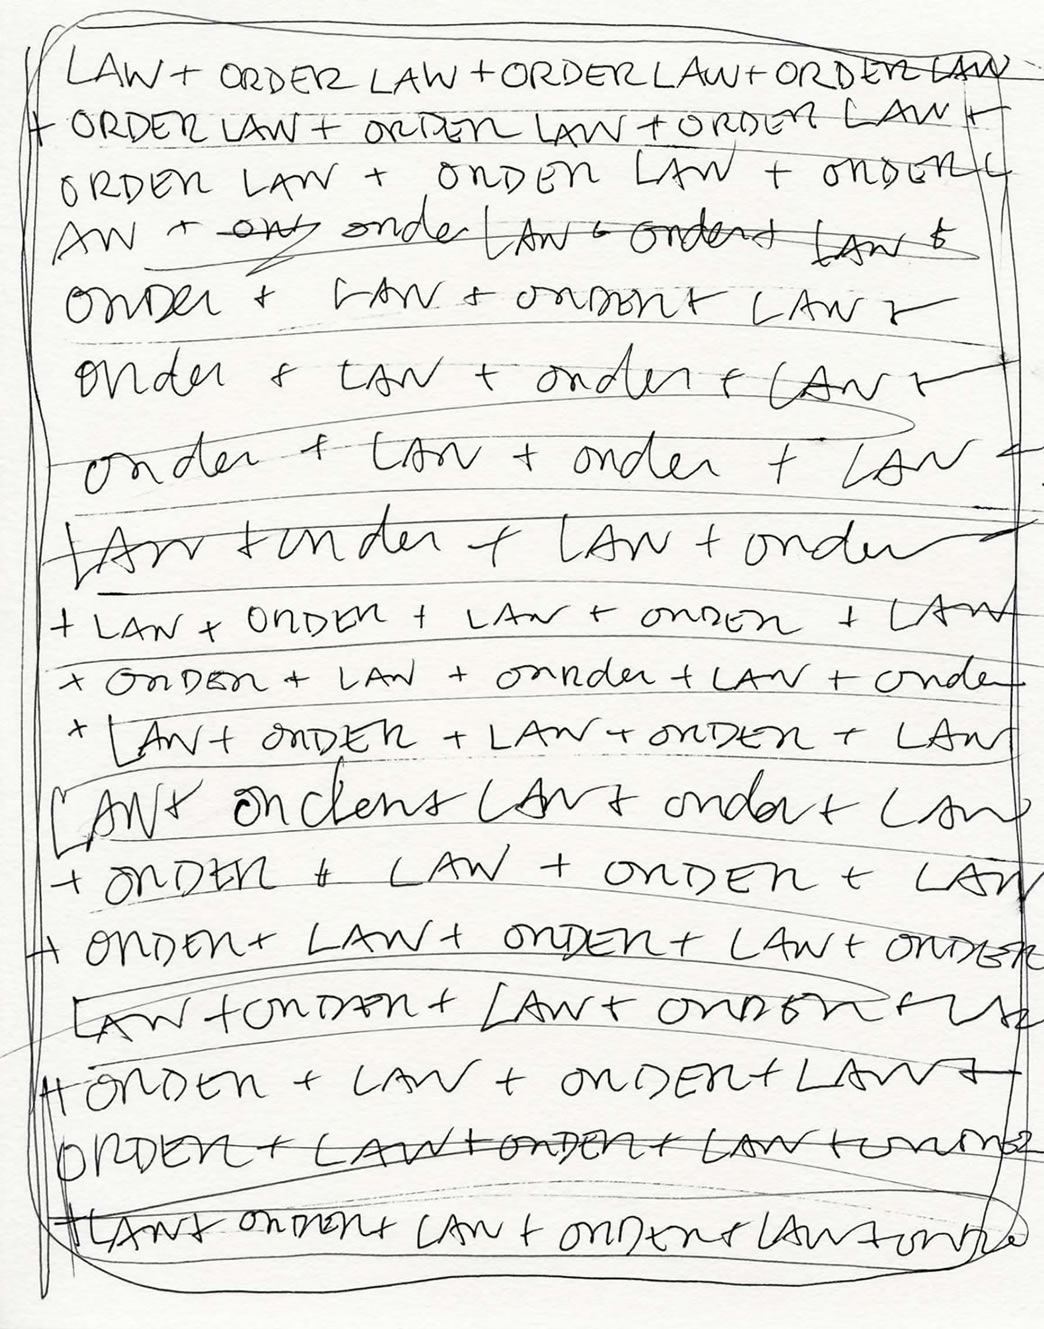 LAW + ORDER LAW + ORDER LAW + ORDER LAW
+ ORDER LAW + ORDER LAW + ORDER LAW +
ORDER LAW + ORDER LAW + ORDER L
AW + order LAW + order + LAW +
ORDER + LAW + ORDER + LAW +
order + LAW + order + LAW +
order + LAW + order + LAW
LAW + order + LAW + order
+ LAW + ORDER + LAW + ORDER + LAW
+ ORDER + LAW + onrder + LAW + order
+ LAW + ORDER + LAW + ORDER + LAW
LAW + order + LAW + order + LAW
+ ORDER + LAW + ORDER + LAW
+ ORDER + LAW + ORDER + LAW + ORDER
LAW + ORDER + LAW + ORDER +
+ ORDER + LAW + ORDER + LAW +
ORDER + LAW + ORDER + LAW +
+ LAW + ORDER + LAW + ORDER + LAW +